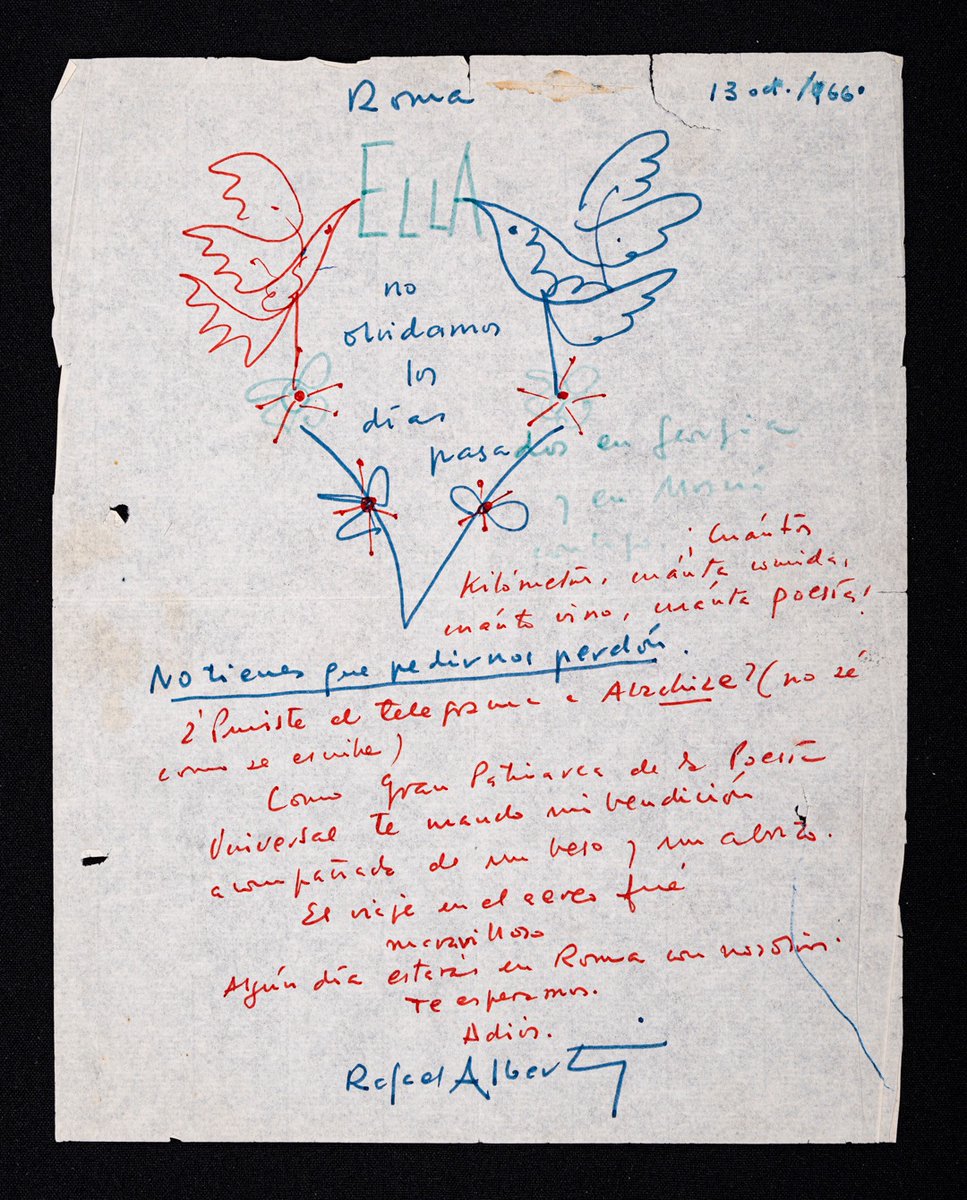 Roma
13 oct./966.
ELLA
no
olvidamos
los
días
pasados en Georgia
y en Moscú
contigo. ¡Cuántos
Kilómetros, cuánta comida,
cuánto vino, cuánta poesía!
No tienes que pedirnos perdón.
¿Pusiste el telegrama a Abachize? (no sé
como se escribe)
Como Gran Patriarca de la Poesía
Universal te mando mi bendición
acompañada de un beso y un abrazo.
El viaje en el aereo fué
maravilloso
Algún día estarás en Roma con nosotros.
Te esperamos.
Adiós.
Rafael Alberti